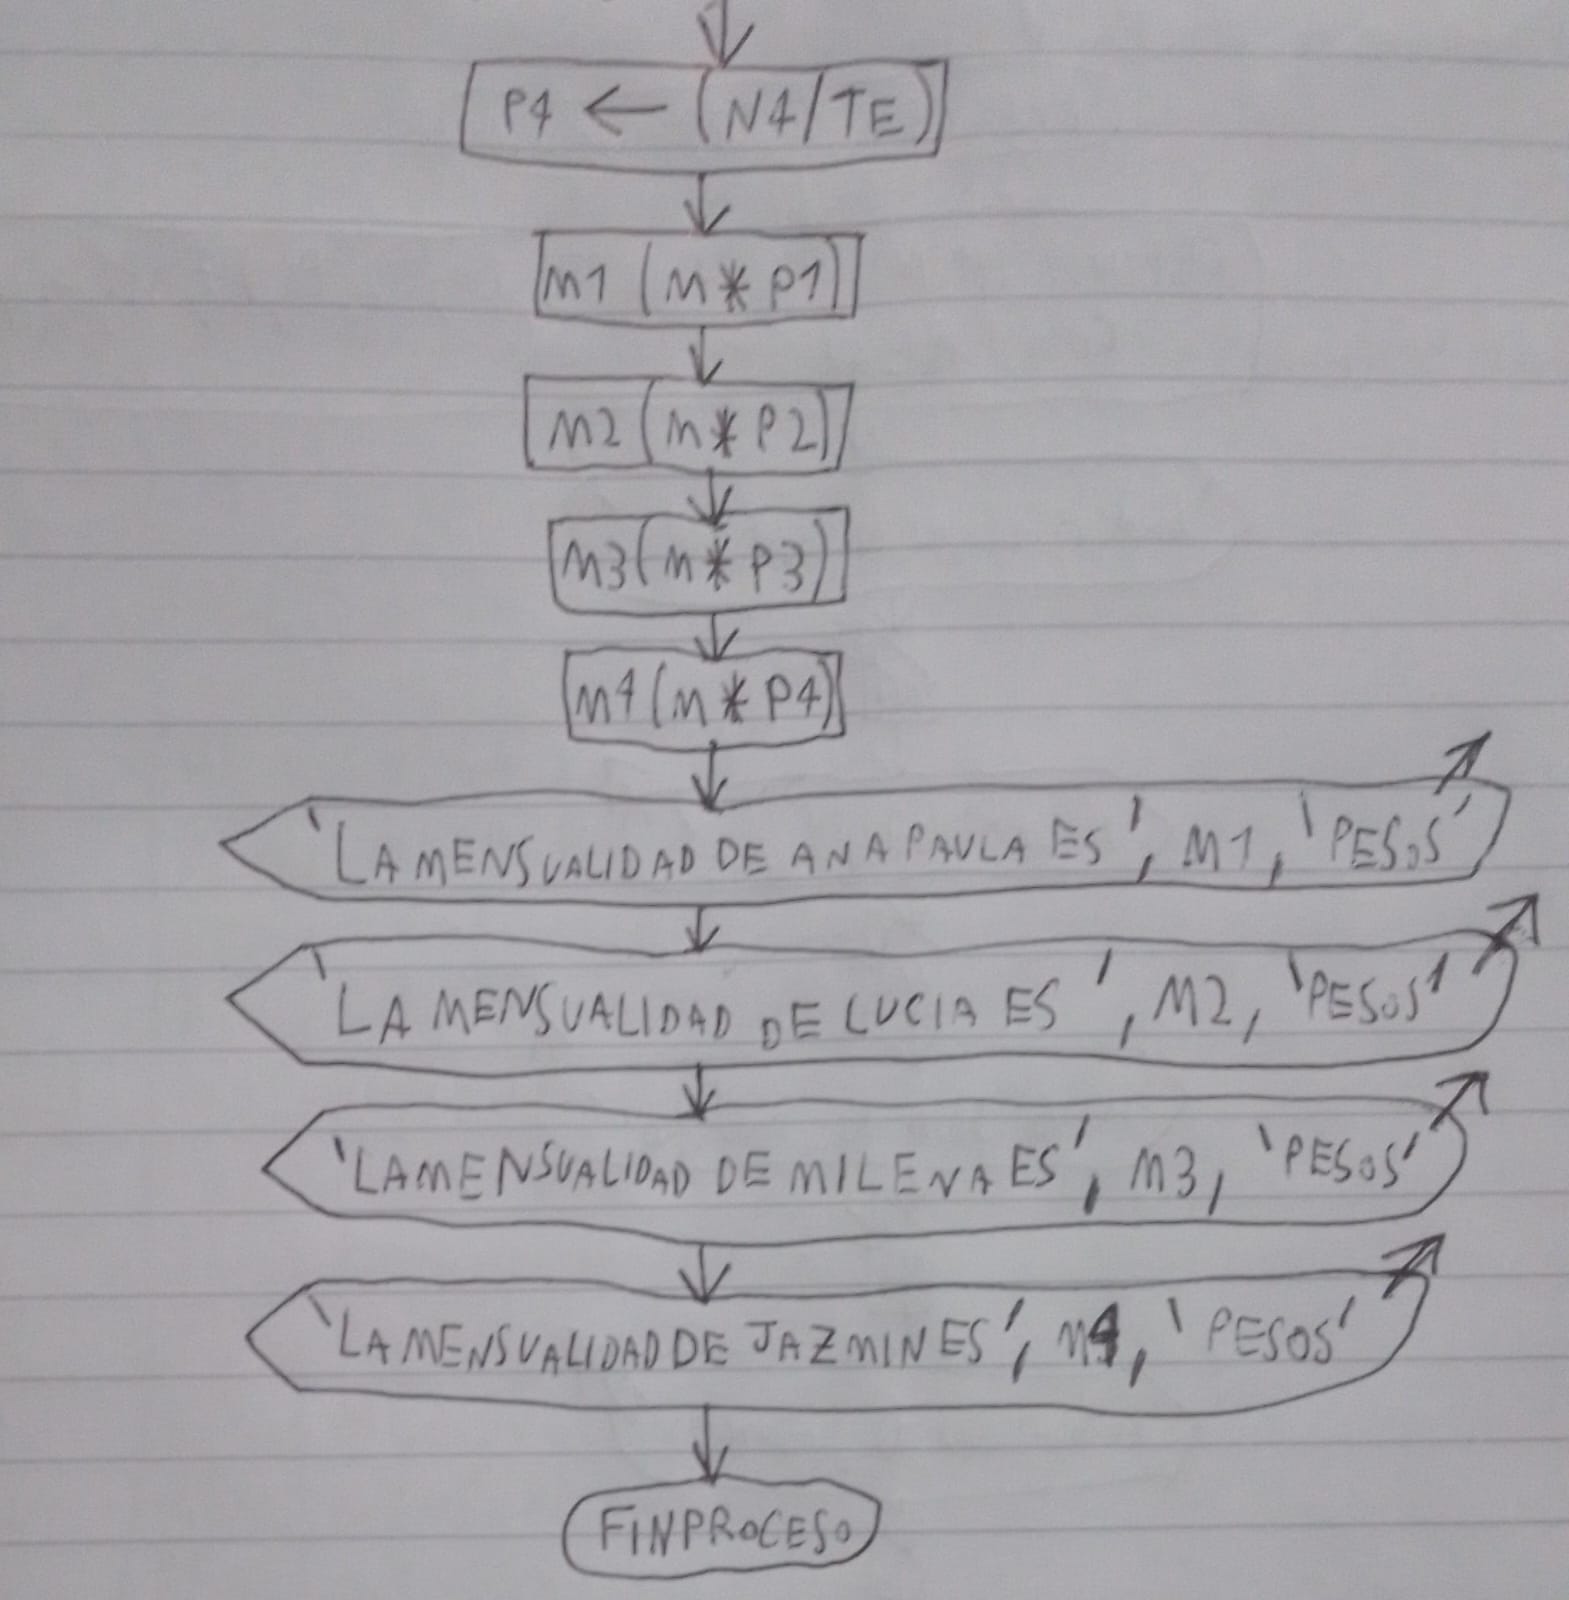 P4 ← (N4/TE)
M1 (M*P1)
M2 (M*P2)
M3 (M*P3)
M4 (M*P4)
'LA MENSUALIDAD DE ANA PAULA ES', M1, 'PESOS'
'LA MENSUALIDAD DE LUCIA ES', M2, 'PESOS'
'LA MENSUALIDAD DE MILENA ES', M3, 'PESOS'
'LA MENSUALIDAD DE JAZMIN ES', M4, 'PESOS'
FINPROCESO